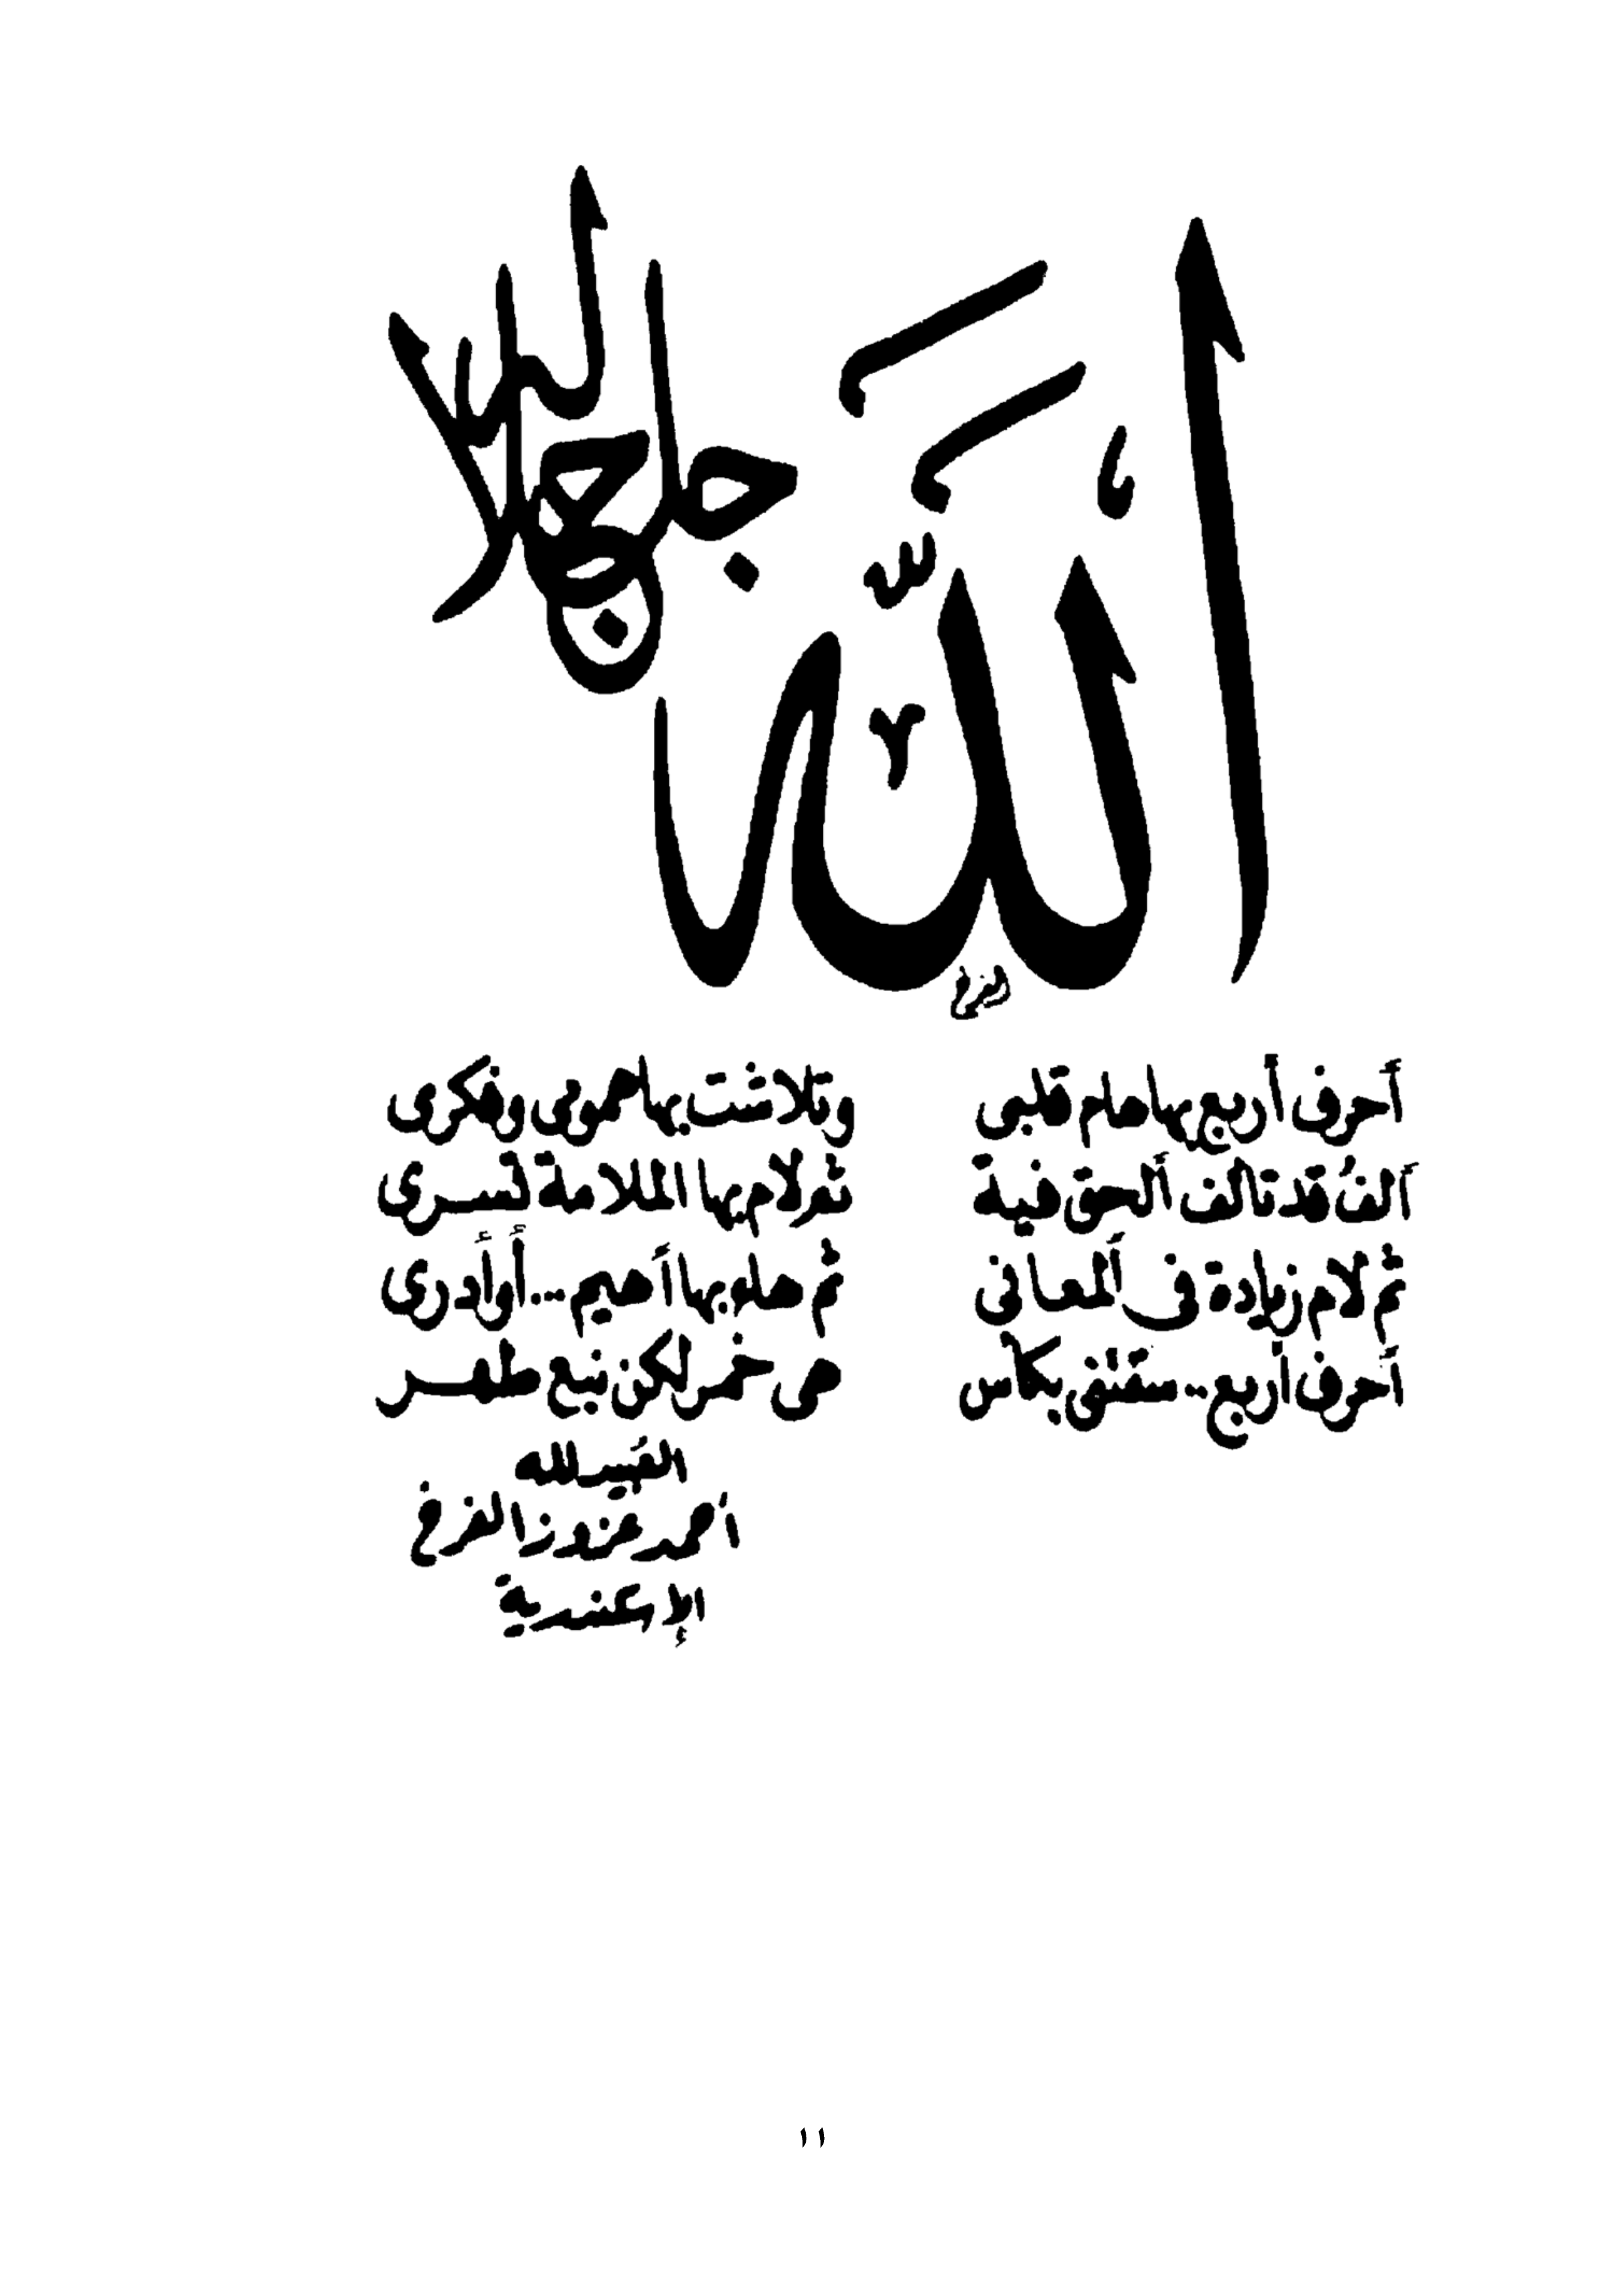 الله جل جلاله
أحرف أربع بها هام قلبي وتلاشت بها همومي وفكري
ألف قد تألف الحق فيه ثم لام بها الملامة تسرى
ثم لام زيادة في المعاني ثم هاء بها أهيم .. أو أدرى
أحرف أربع .. ستقتنى بكأس من خمر لكن نبع طهر
الفقير لله
أحمد
الإسكندرية
١١